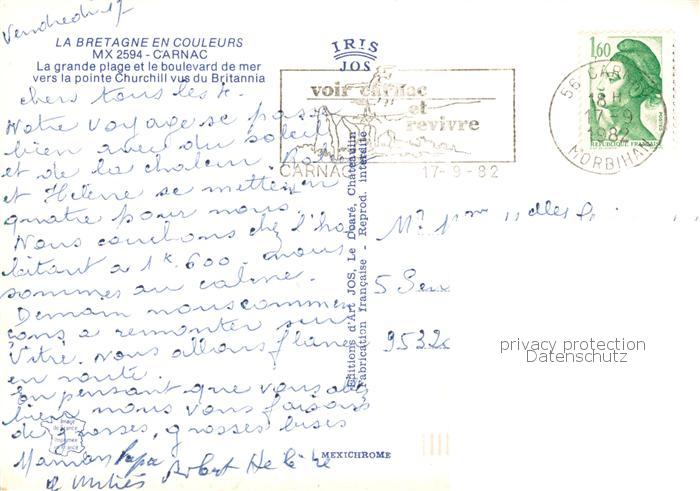 Vendredi 17
LA BRETAGNE EN COULEURS
MX 2594 - CARNAC
La grande plage et le boulevard de mer
vers la pointe Churchill vus du Britannia
IRIS
JOS
voir carnac
et
revivre
CARNAC 17-9-82
1,60
56 CARNAC
18 H
17-9
1982
MORBIHAN
POSTES
REPUBLIQUE FRANÇAISE
chers tous les 4.
Notre voyage se passe
bien avec du soleil
et de la chaleur.
et Hélène se mettent
quatre pour nous.
Nous couchons chez l'ha
bitant a 1k.600. nous
sommes au calme.
Demain nous commen
çons a remonter sur
Vitré. Nous allons flaner
en route.
En pensant que vous allez
bien nous vous faisons
de grosses, grosses bises
Maman Papa Robert Hélène
Editions d'Art JOS, Le Doaré, Châteaulin
Fabrication française - Reprod. interdite
MEXICHROME
Image
de France
Imprimée
en France
5
9532
privacy protection
Datenschutz